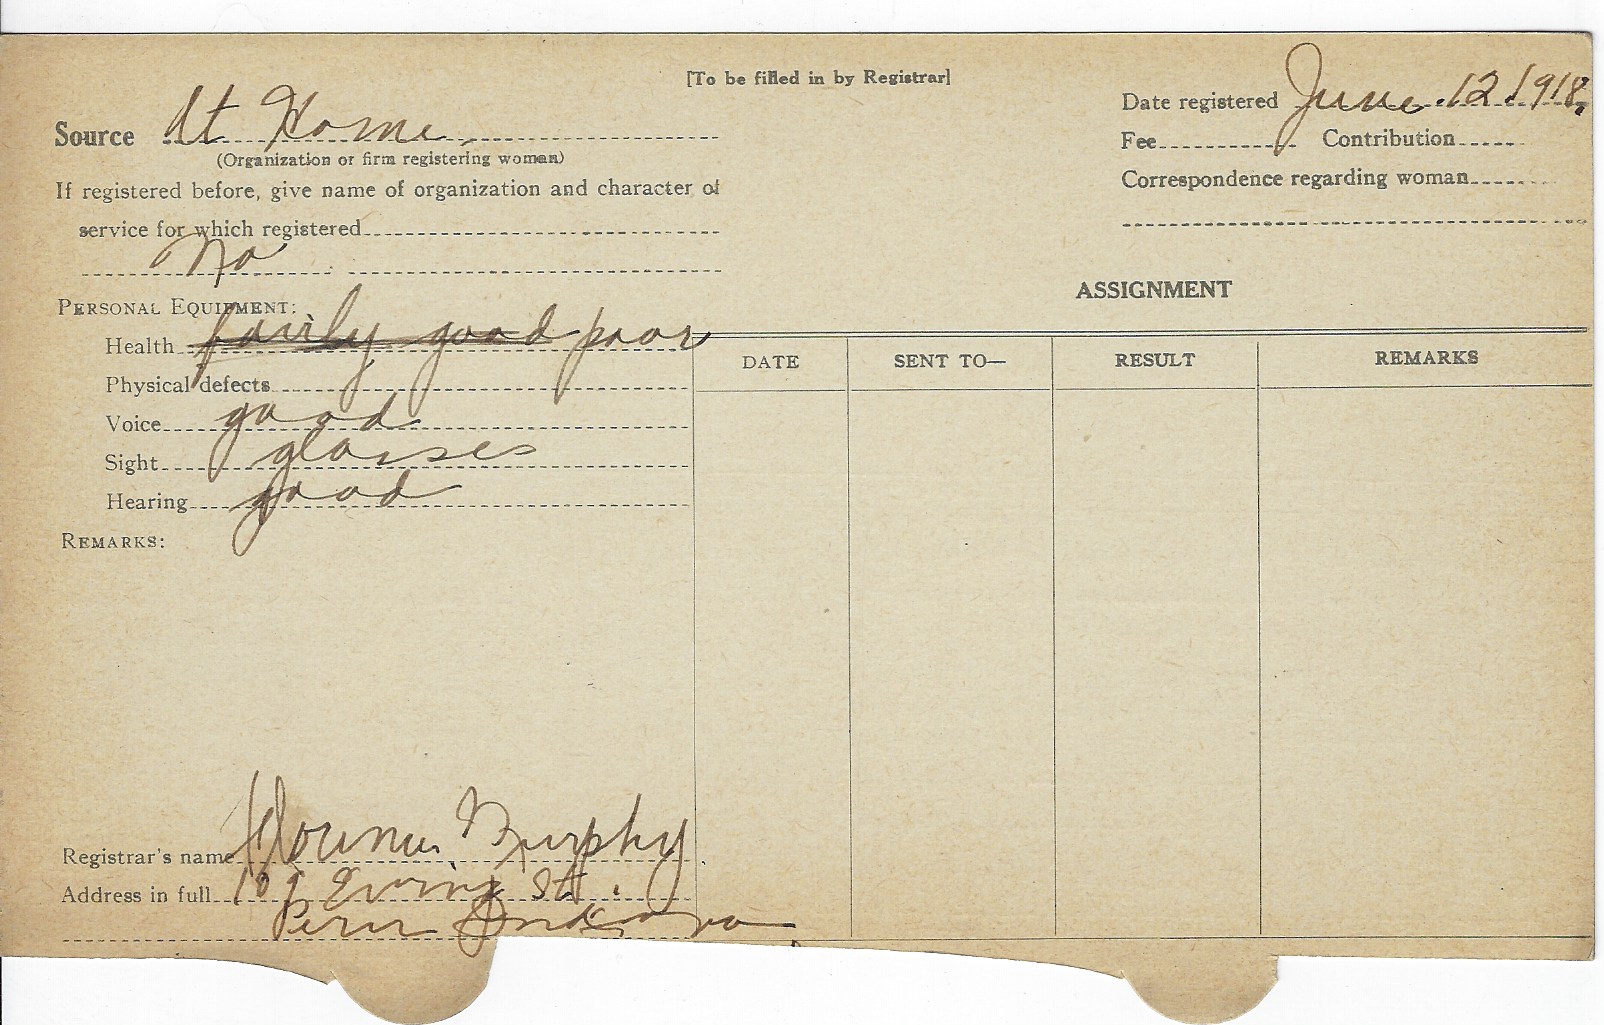 [To be filled in by Registrar]
Source At Home
(Organization or firm registering woman)
If registered before, give name of organization and character of
service for which registered
No
PERSONAL EQUIPMENT:
Health fairly good poor
Physical defects
Voice good
Sight glasses
Hearing good
REMARKS:
Registrar's name Florence Murphy
Address in full 109 Ewing St.
Peru Indiana
Date registered June 12 1918.
Fee Contribution
Correspondence regarding woman
ASSIGNMENT
DATE SENT TO— RESULT REMARKS